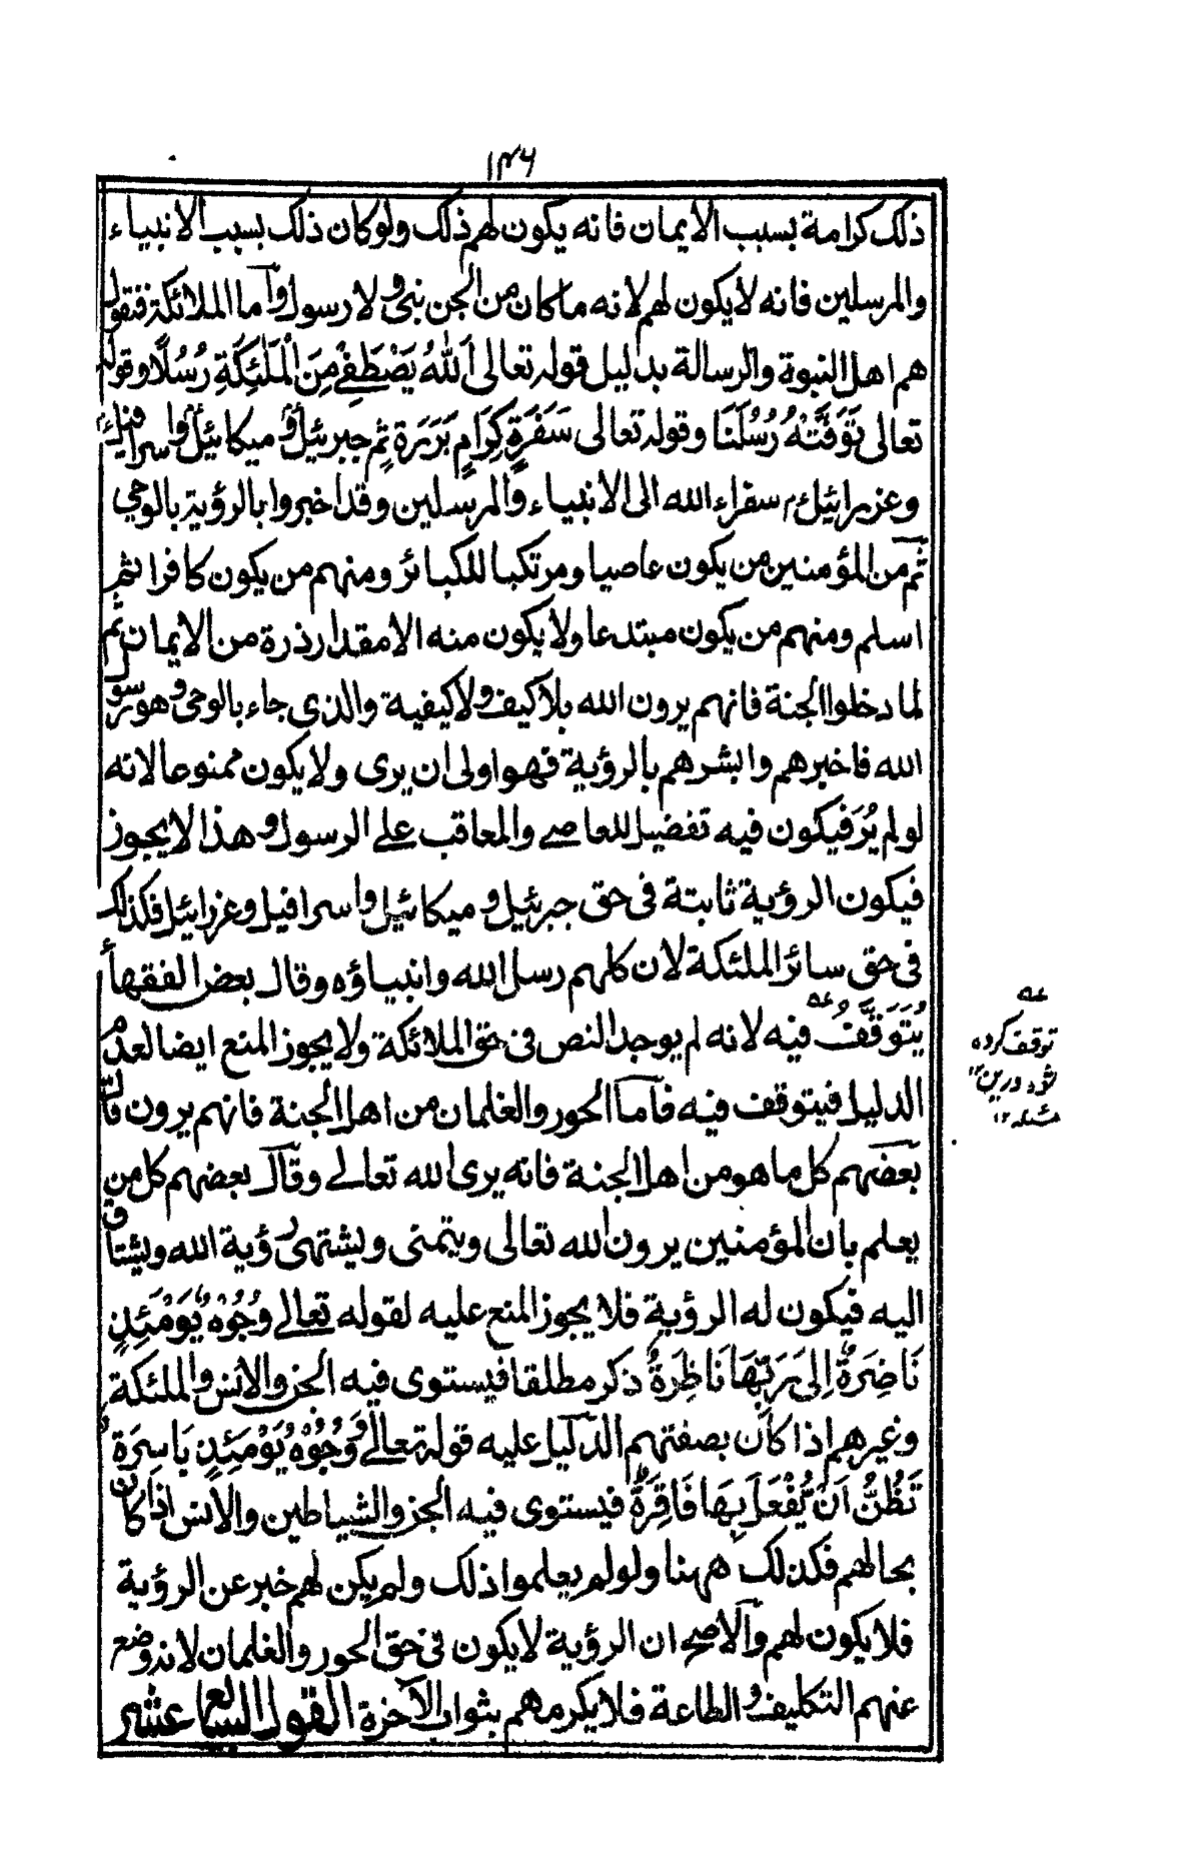 ۱۴۶
ذلك كرامة بسبب الايمان فانه يكون لهم ذلك ولو كان ذلك بسبب الانبياء
والمرسلين فانه لا يكون لهم لانه ما كان من الجن نبى ولا رسول واما الملائكة فنقول
هم اهل النبوة والرسالة بدليل قوله تعالى اَللهُ يَصْطَفِىْ مِنَ الْمَلٰئِكَةِ رُسُلًا وقوله
تعالى تَوَفَّتْهُ رُسُلُنَا وقوله تعالى سَفَرَةٍ كِرَامٍ بَرَرَةٍ ثم جبرئيل و ميكائيل واسرافيل
وعزرائيل سفراء الله الى الانبياء والمرسلين وقد اخبروا بالرؤية بالوحي
ثم من المؤمنين من يكون عاصيا ومرتكبا للكبائر ومنهم من يكون كافرا ثم
اسلم ومنهم من يكون مبتدعا ولا يكون منه الا مقدار ذرة من الايمان ثم
لما دخلوا الجنة فانهم يرون الله بلا كيف ولا كيفية والذى جاء بالوحى وهو رسول
الله فاخبرهم والبشرهم بالرؤية فهو اولى ان يرى ولا يكون ممنوعا لانه
لو لم يُرَ فيكون فيه تفضيل للعاصى والمعاقب على الرسول وهذا لا يجوز
فيكون الرؤية ثابتة فى حق جبرئيل و ميكائيل واسرافيل وعزرائيل فكذلك
فى حق سائر الملئكة لان كلهم رسل الله وانبياؤه وقال بعض الفقهاء
يُتَوَقَّفُ عه فيه لانه لم يوجد النص فى حق الملائكة ولا يجوز المنع ايضا لعدم
الدليل فيتوقف فيه فاما الحور والغلمان من اهل الجنة فانهم يرون قال
بعضهم كل ما هو من اهل الجنة فانه يرى الله تعالى وقال بعضهم كل من
يعلم بان المؤمنين يرون الله تعالى ويتمنى ويشتهى رؤية الله ويشتاق
اليه فيكون له الرؤية فلا يجوز المنع عليه لقوله تعالى وُجُوْهٌ يَوْمَئِذٍ
نَاضِرَةٌ اِلٰى رَبِّهَا نَاظِرَةٌ ذكر مطلقا فيستوى فيه الجن والانس والملئكة
وغيرهم اذا كان بصفتهم الدليل عليه قوله تعالى وَوُجُوْهٌ يَوْمَئِذٍ بَاسِرَةٌ
تَظُنُّ اَنْ يُّفْعَلَ بِهَا فَاقِرَةٌ فيستوى فيه الجن والشياطين والانس اذا كان
بحالهم فكذلك ههنا ولو لم يعلموا ذلك ولم يكن لهم خبر عن الرؤية
فلا يكون لهم والاصح ان الرؤية لا يكون فى حق الحور والغلمان لانه وضع
عنهم التكليف و الطاعة فلا يكرمهم بثواب الآخرة القول السابع عشر
عه
توقف کرده
شود درین
مسئله ۱۲